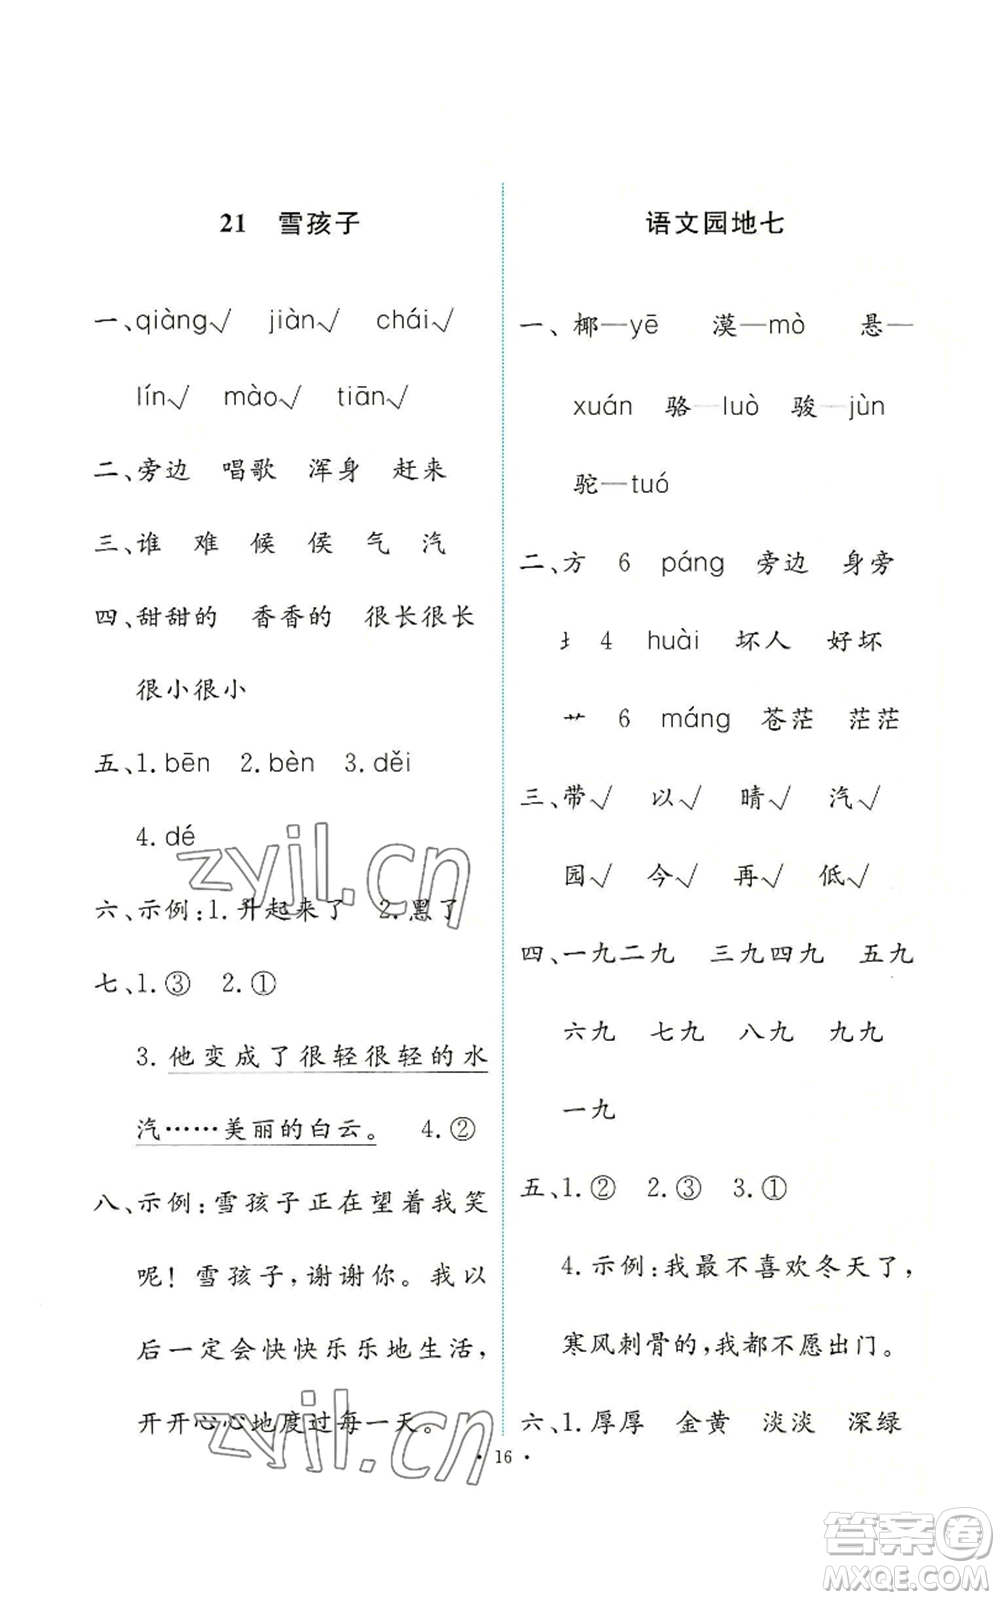 21 雪孩子
一、qiàng√ jiàn√ chái√
lín√ mào√ tiān√
二、旁边 唱歌 浑身 赶来
三、谁 难 候 侯 气 汽
四、甜甜的 香香的 很长很长
很小很小
五、1.bēn 2.bèn 3.děi
4.dé
六、示例:1.升起来了 2.黑了
七、1.③ 2.①
3.他变成了很轻很轻的水
汽……美丽的白云。 4.②
八、示例:雪孩子正在望着我笑
呢!雪孩子,谢谢你。我以
后一定会快快乐乐地生活,
开开心心地度过每一天。
语文园地七
一、椰—yē 漠—mò 悬—
xuán 骆—luò 骏—jùn
驼—tuó
二、方 6 páng 旁边 身旁
土 4 huài 坏人 好坏
艹 6 máng 苍茫 茫茫
三、带√ 以√ 晴√ 汽√
园√ 今√ 再√ 低√
四、一九二九 三九四九 五九
六九 七九 八九 九九
一九
五、1.② 2.③ 3.①
4.示例:我最不喜欢冬天了,
寒风刺骨的,我都不愿出门。
六、1.厚厚 金黄 淡淡 深绿
• 16 •
zyjl.cn
zyjl.cn
答案卷
MXQE.COM